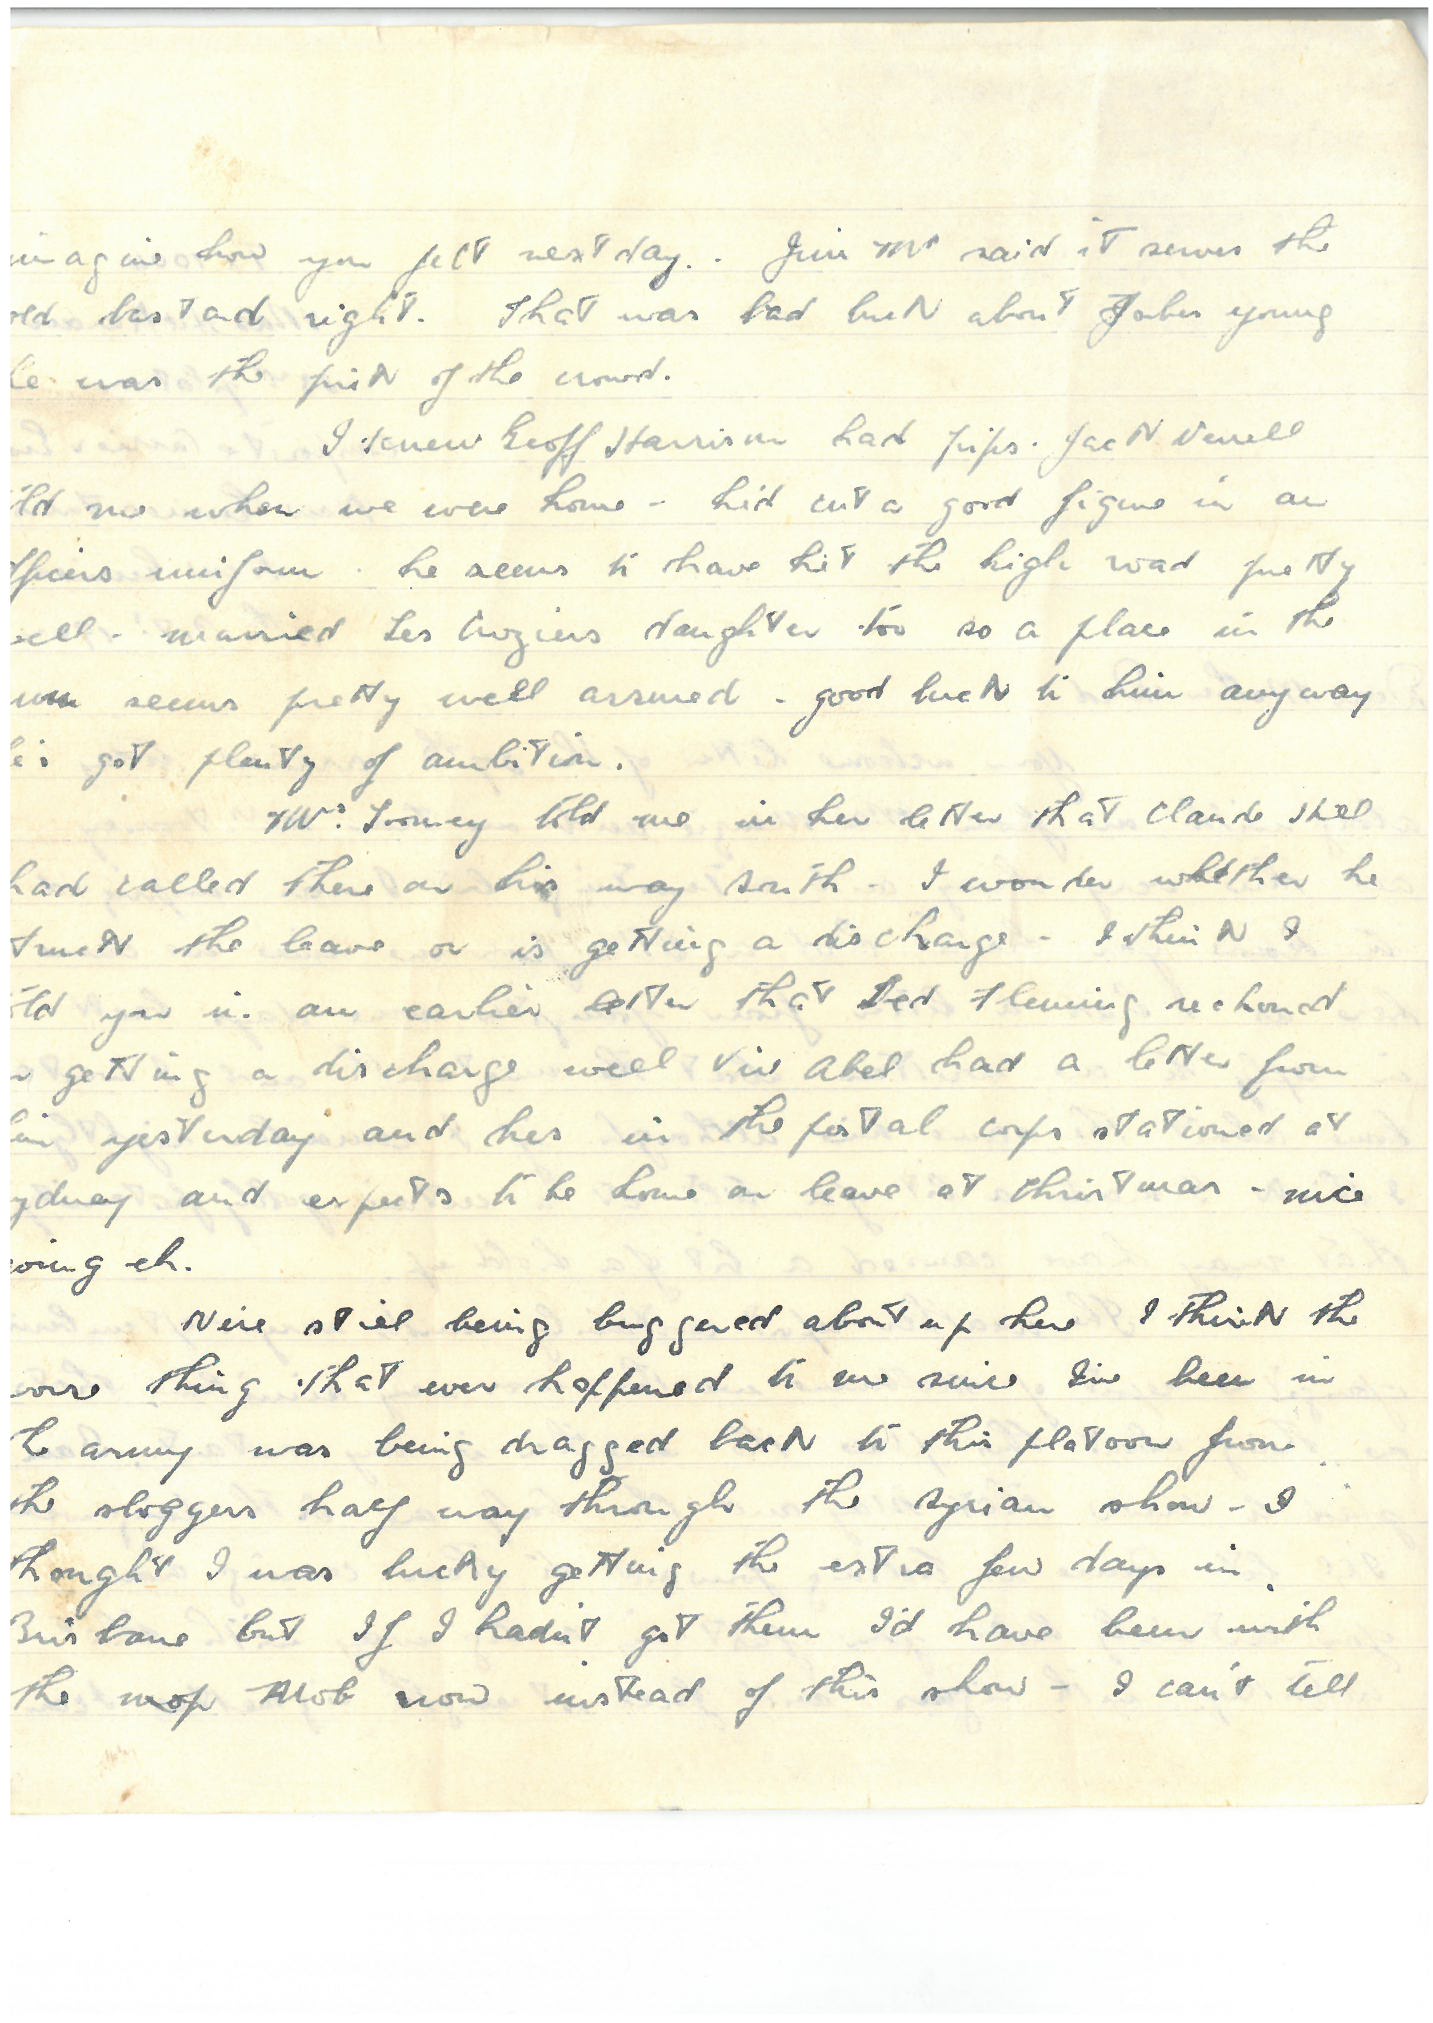 imagine how you felt next day. . Jim Mc said it serves the
old bastard right. That was bad luck about young
He was the pick of the crowd.
I knew Geoff Harrison had pips. Jack Verrell
told me when we were home - he'd cut a good figure in an
officers uniform. he seems to have hit the high road pretty
well - married Les Croziers daughter too so a place in the
seems pretty well assured - good luck to him anyway
he's got plenty of ambition.
Mrs. Toomey told me in her letter that Claude Hill
had called there on his way south - I wonder whether he
struck the leave or is getting a discharge - I think I
told you in an earlier letter that Ted Fleming reckoned
on getting a discharge well Viv Abel had a letter from
him yesterday and hes in the postal corps stationed at
Sydney and expects to be home on leave at Christmas - nice
going eh.
We're still being buggered about up here I think the
worse thing that ever happened to me since I've been in
the army was being dragged back to this platoon from
the sloggers half way through the Syrian show - I
thought I was lucky getting the extra few days in
Brisbane but If I hadn't got them I'd have been with
the mob now instead of this show - I can't tell